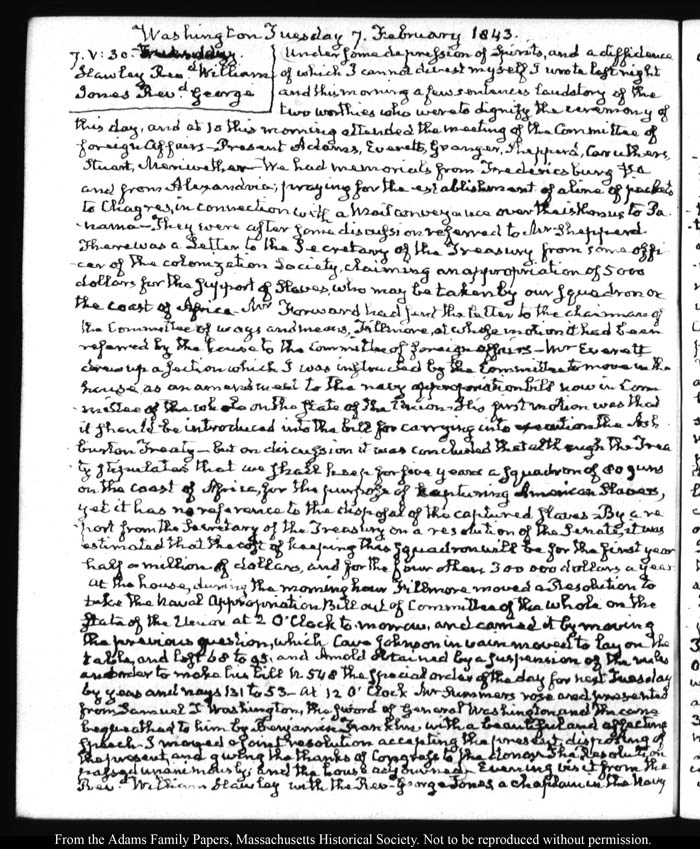 Washington Tuesday 7. February 1843.
7. V: 30. Tuesday.
Hawley Revd. William
Jones Revd. George
Under some depression of Spirits, and a diffidence
of which I cannot divest myself I wrote last night
and this morning a few sentences laudatory of the
two worthies who were to dignify the ceremony of
this day, and at 10 this morning attended the meeting of the Committee of
foreign Affairs—Present Adams, Everett, Granger, Shepperd, Caruthers,
Stuart, Meriwether—We had memorials from Fredericksburg Va
and from Alexandria; praying for the establishment of a line of packets
to Chagres, in connection with a Mail conveyance over the isthmus to Pa-
nama—They were after some discussion referred to Mr Shepperd
There was a Letter to the Secretary of the Treasury, from some offi-
cer of the Colonization Society, claiming an appropriation of 5000
dollars for the support of Slaves, who may be taken by our Squadron on
the coast of Africa—Mr Forward had sent the Letter to the chairman of
the Committee of ways and means, Fillmore, at whose motion it had been
referred by the house to the Committee of foreign affairs—Mr Everett
drew up a section which I was instructed by the Committee to move in the
house as an amendment to the navy appropriation bill now in Com-
mittee of the whole on the State of the Union. His first motion was that
it should be introduced into the bill for carrying into execution the Ash-
burton Treaty—but on discussion it was concluded that although the Trea-
ty stipulates that we shall keep for five years a Squadron of 80 guns
on the coast of Africa, for the purpose of capturing American Slavers,
yet it has no reference to the disposal of the captured slaves—By a re-
port from the Secretary of the Treasury on a resolution of the Senate, it was
estimated that the cost of keeping this Squadron will be for the first year
half a million of dollars, and for the four others 300 000 dollars a year
At the house, during the morning hour Fillmore moved a Resolution to
take the Naval Appropriation Bill out of Committee of the whole on the
State of the Union at 2 O'Clock to-morrow, and carried it by moving
the previous question, which Cave Johnson in vain moved to lay on the
table, and lost 68 to 95, and Arnold obtained by a suspension of the rules
an order to make his bill N. 548 the special order of the day for next Tuesday
by yeas and nays 131 to 53—At 12 O'Clock Mr Summers rose and presented
from Samuel T Washington, the sword of General Washington and the cane
bequeathed to him by Benjamin Franklin with a beautiful and affecting
speech—I moved a joint resolution accepting the present, disposing of
the present, and giving the thanks of Congress to the donor. The Resolution
passed unanimously; and the house adjourned. Evening visit from the
Revd. William Hawley with the Revd. George Jones, a chaplain in the Navy
From the Adams Family Papers, Massachusetts Historical Society. Not to be reproduced without permission.